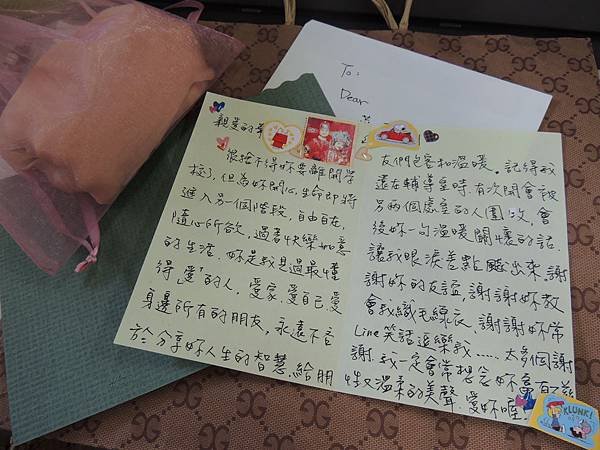 To:
Dear
親愛的
很捨不得妳要離開學
校,但為妳開心,生命即將
進入另個階段,自由自在,
隨心所欲,過著快樂如意
的生活。妳是我見過最懂
得"愛"的人,愛家、愛自己、愛
身邊所有的朋友,永遠不吝
於分享妳人生的智慧,給朋
友們包容和溫暖。記得我
還在輔導室時,有次開會被
另兩個處室的人圍攻,會
後妳一句溫暖關懷的話,
讓我眼淚差點飆出來,謝
謝妳的友誼,謝謝妳教
會我織毛線衣,謝謝妳常
Line笑話逗樂我……太多個謝
謝,我一定會常想念妳富有
性又溫柔的美聲。愛妳喔!
KLUNK!